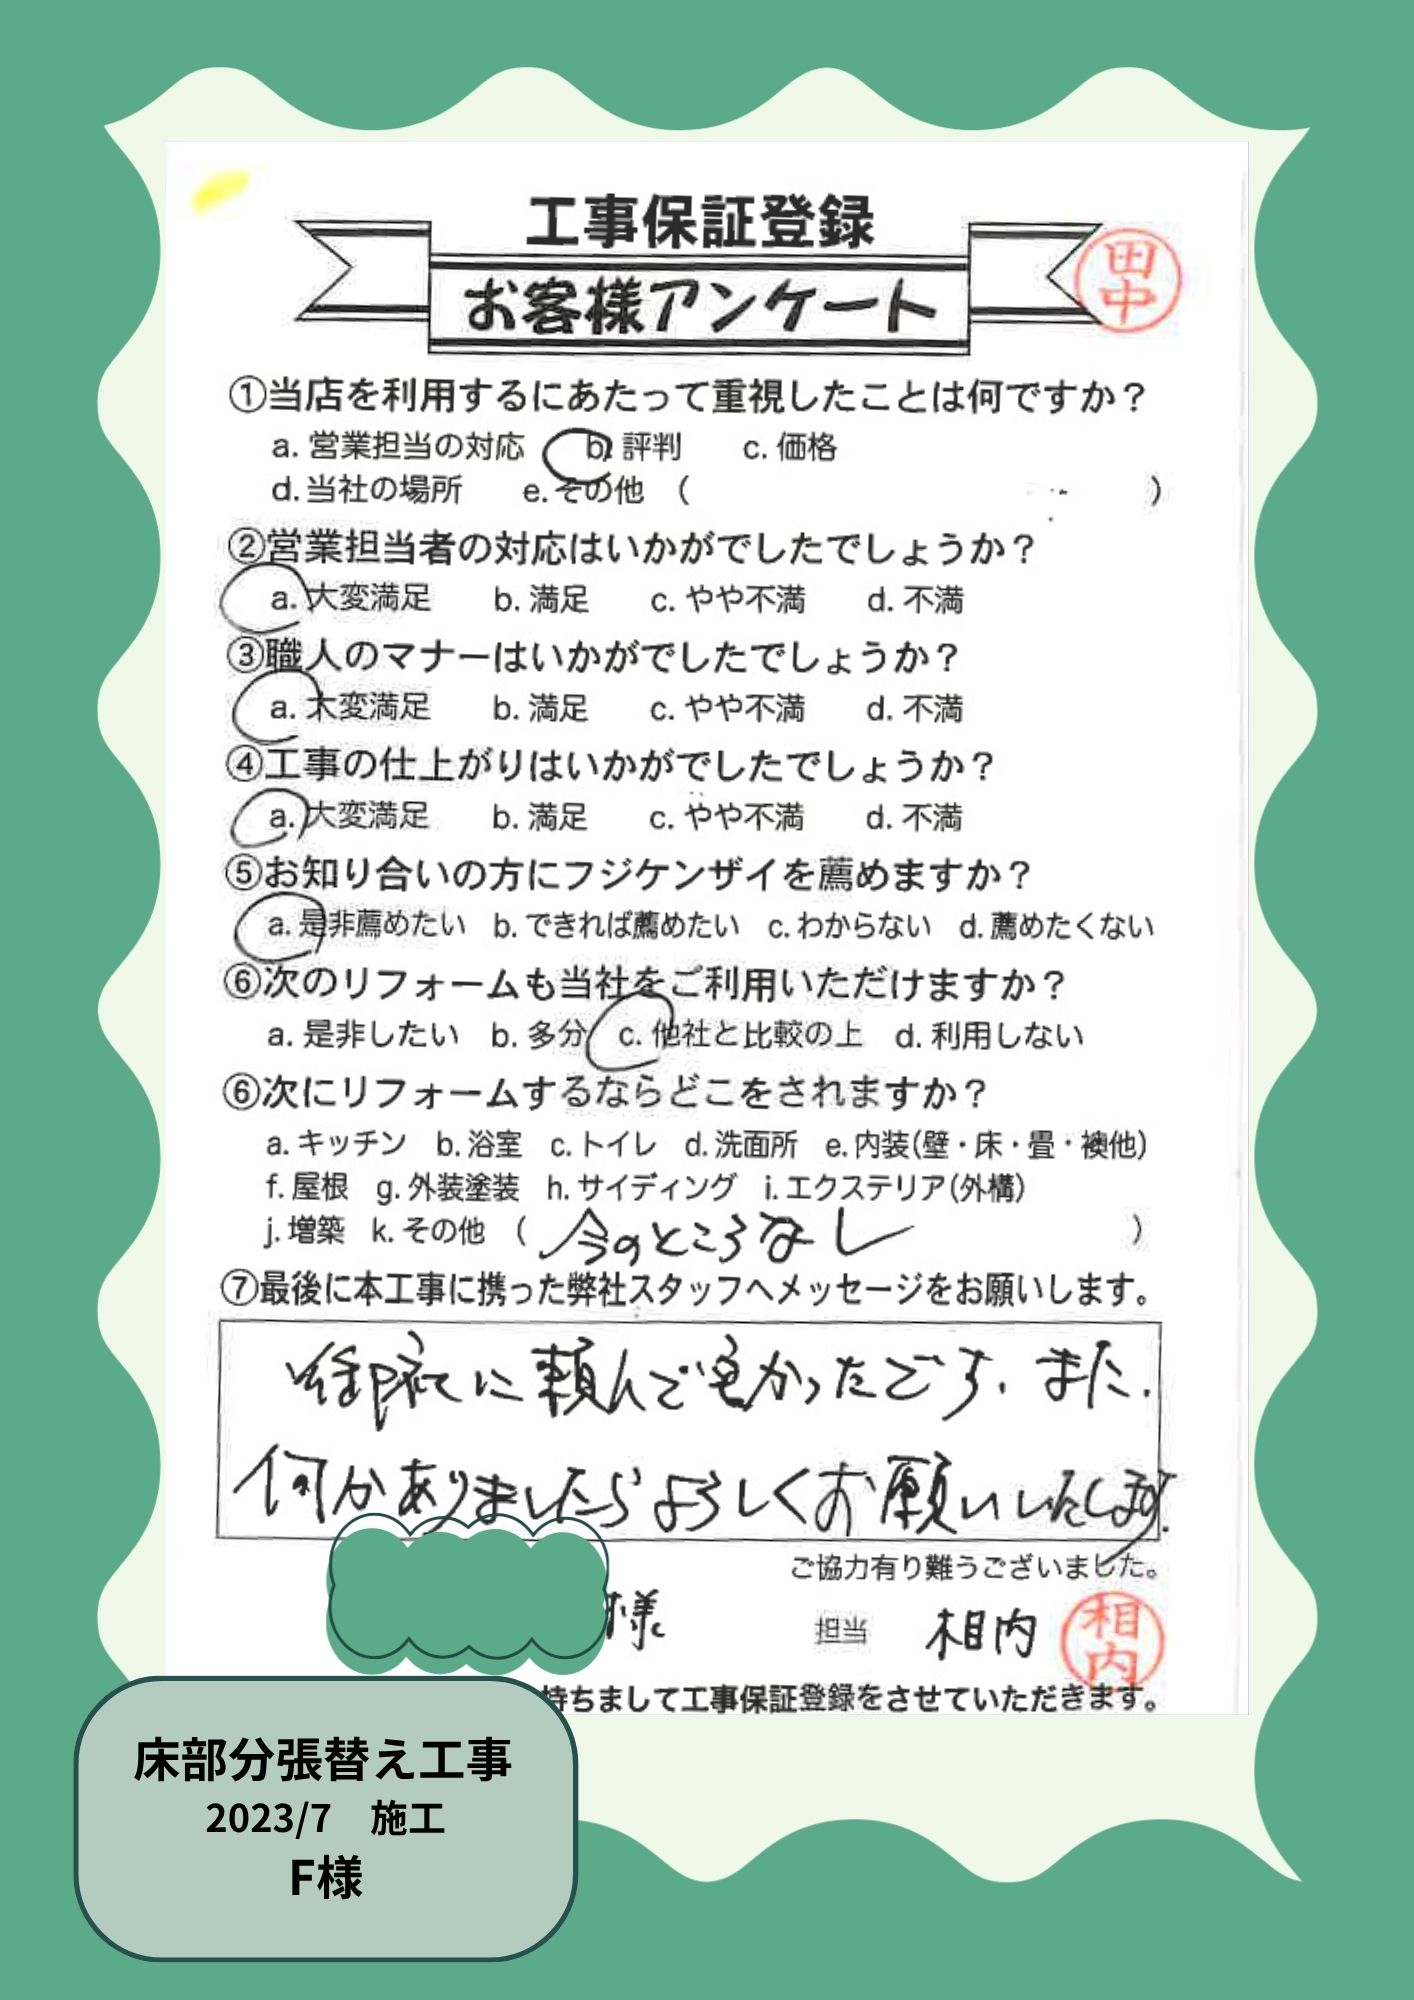 工事保証登録
お客様アンケート
田中
①当店を利用するにあたって重視したことは何ですか？
a. 営業担当の対応 b. 評判 c. 価格
d. 当社の場所 e. その他 （ ）
②営業担当者の対応はいかがでしたでしょうか？
a. 大変満足 b. 満足 c. やや不満 d. 不満
③職人のマナーはいかがでしたでしょうか？
a. 大変満足 b. 満足 c. やや不満 d. 不満
④工事の仕上がりはいかがでしたでしょうか？
a. 大変満足 b. 満足 c. やや不満 d. 不満
⑤お知り合いの方にフジケンザイを薦めますか？
a. 是非薦めたい b. できれば薦めたい c. わからない d. 薦めたくない
⑥次のリフォームも当社をご利用いただけますか？
a. 是非したい b. 多分 c. 他社と比較の上 d. 利用しない
⑥次にリフォームするならどこをされますか？
a. キッチン b. 浴室 c. トイレ d. 洗面所 e. 内装(壁・床・畳・襖他)
f. 屋根 g. 外装塗装 h. サイディング i. エクステリア(外構)
j. 増築 k. その他 （ 今のところなし ）
⑦最後に本工事に携った弊社スタッフへメッセージをお願いします。
御社に頼んで良かったです、また、
何かありましたらよろしくお願いいたします。
ご協力有り難うございました。
様 担当 相内 相内
持ちまして工事保証登録をさせていただきます。
床部分張替え工事
2023/7 施工
F様